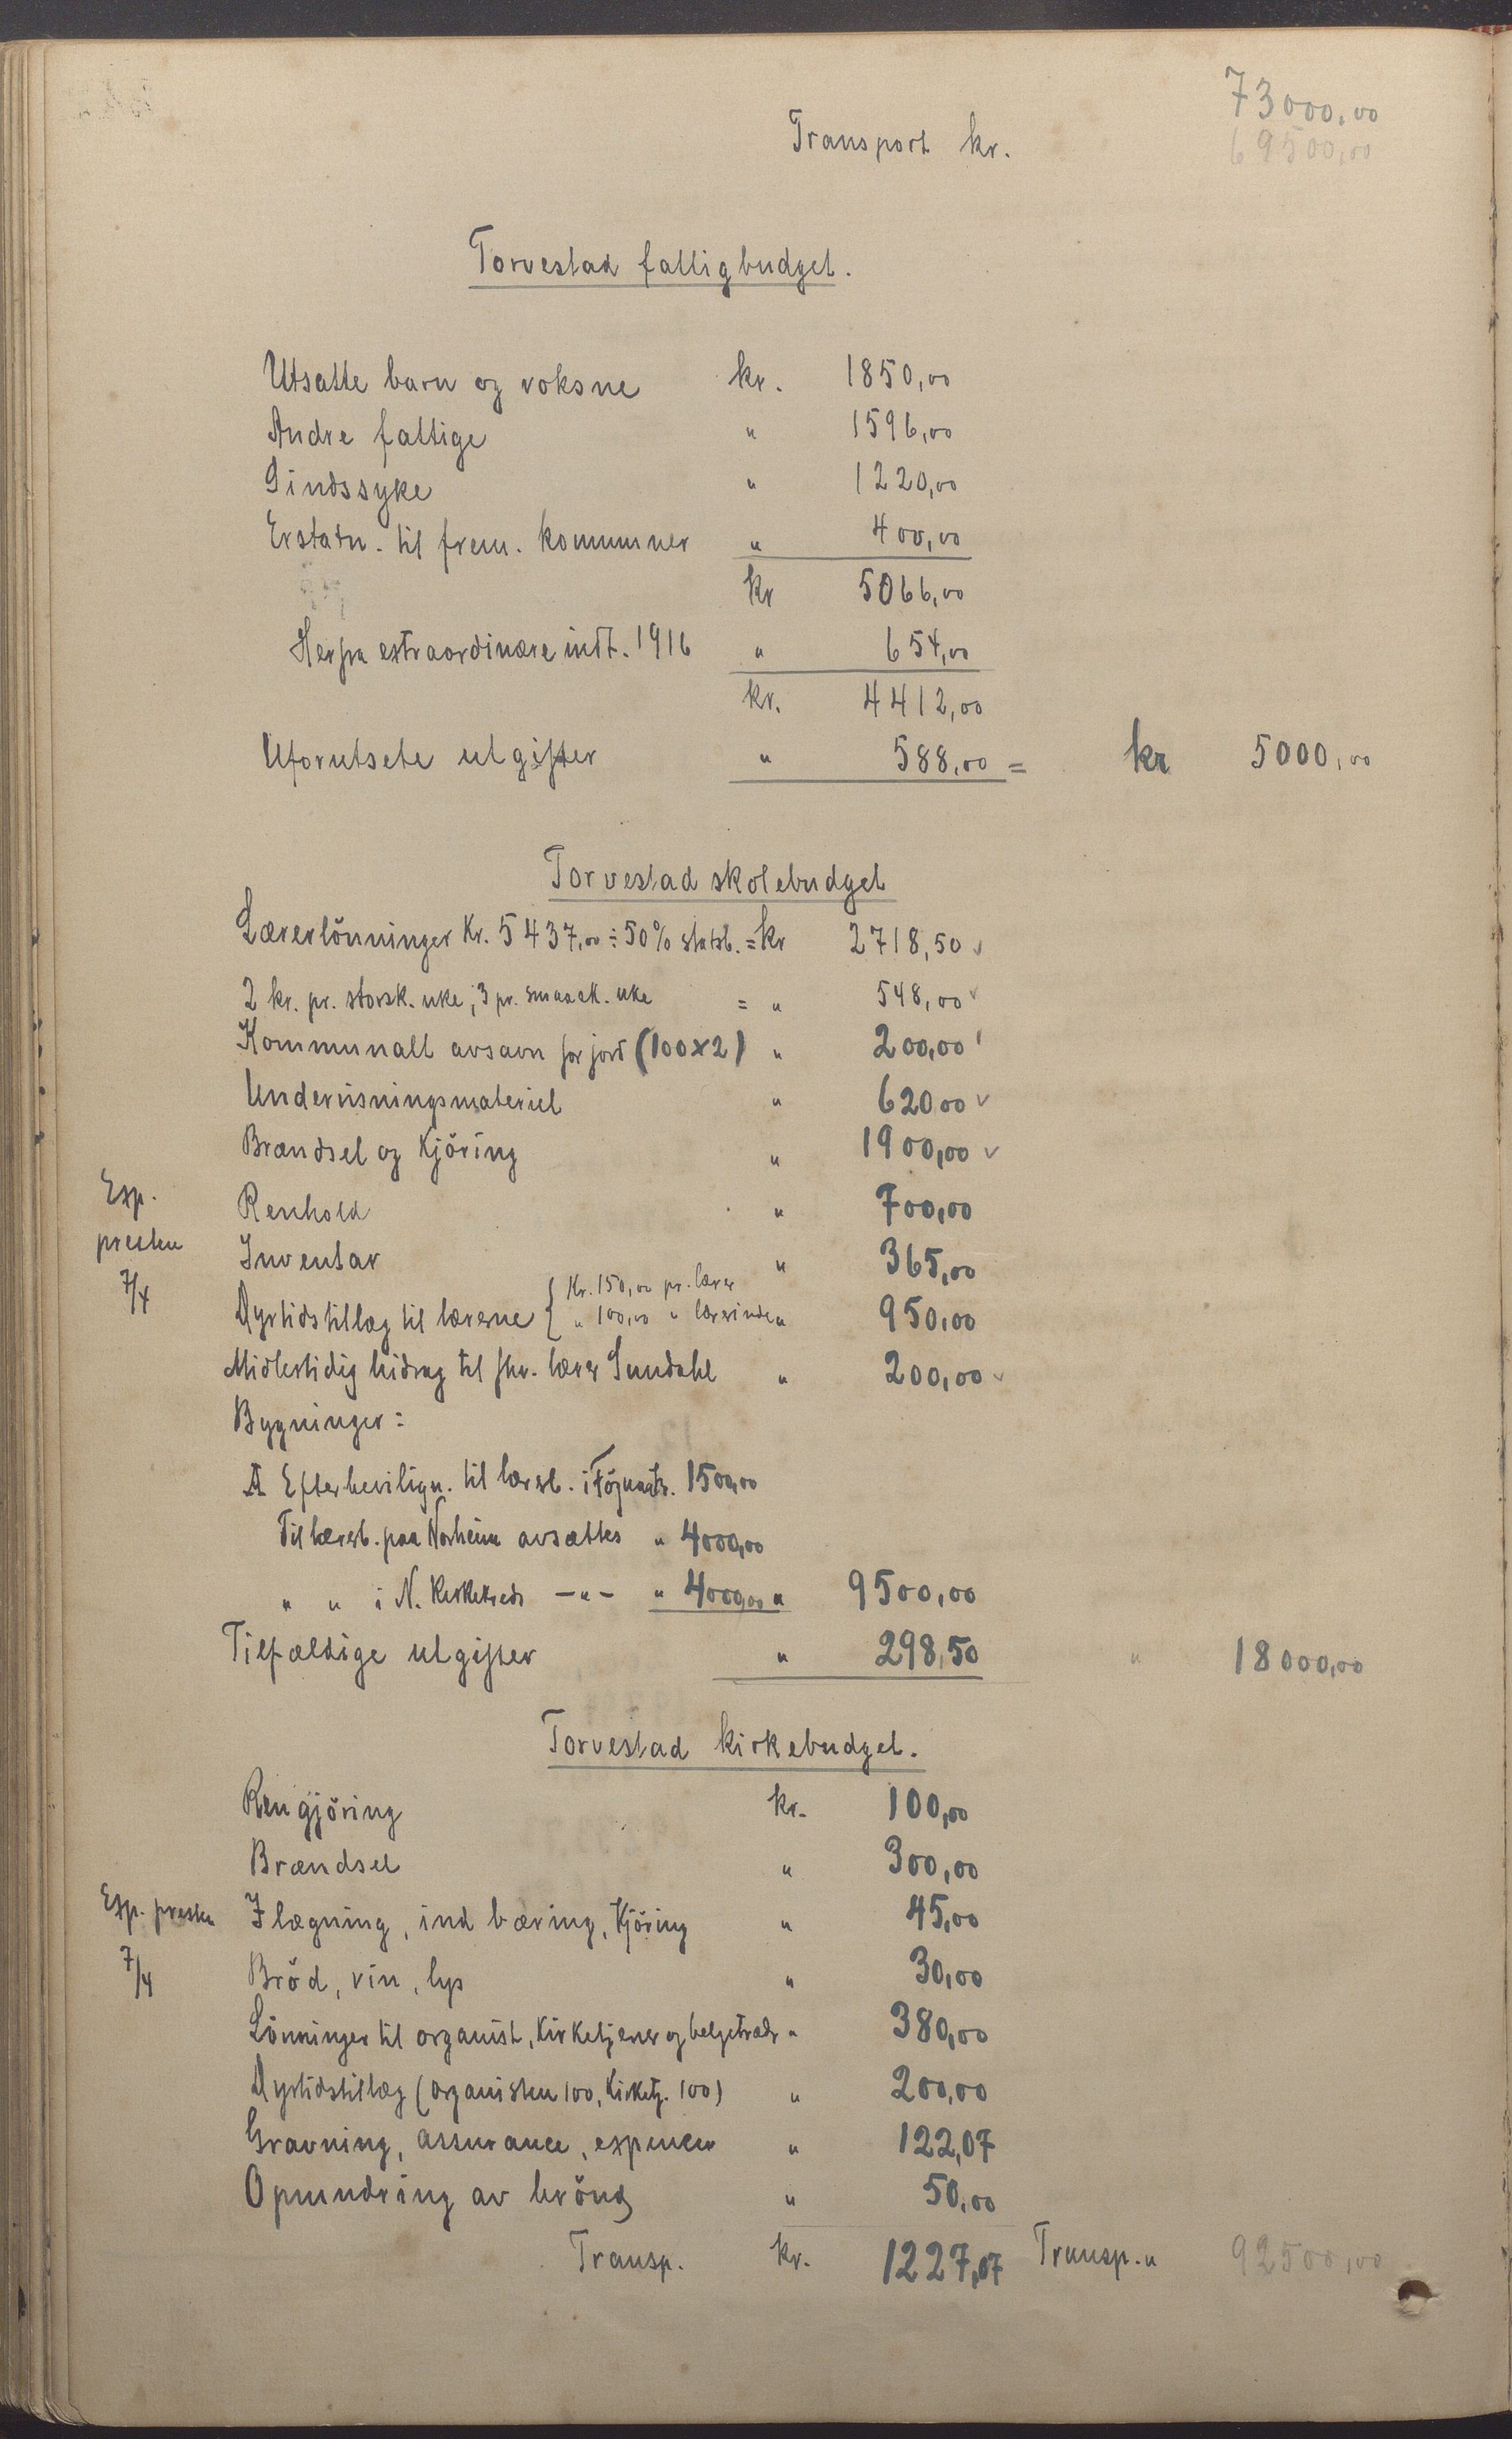 73000,00
Transport kr. 69500,00
Torvestad fattigbudget.
Utsatte barn og voksne kr. 1850,00
Andre fattige " 1596,00
Sindssyke " 1220,00
Erstatn. til frem. kommuner " 400,00
kr 5066,00
Herfra extraordinære indt. 1916 " 654,00
kr. 4412,00
Uforutsete utgifter " 588,00 = kr 5000,00
Torvestad skolebudget
Lærerlönninger kr. 5437,00 ÷ 50% statsb. = kr 2718,50 ✓
2 kr. pr. storsk. uke, 3 pr. smaask. uke = " 548,00 ✓
Kommunalt avsavn for jord (100x2) " 200,00
Undervisningsmateriel " 620 00 ✓
Brændsel og kjöring " 1900,00 ✓
Exp. Renhold " 700,00
presten Inventar " 365,00
7/4 Dyrtidstillæg til lærerne { Kr. 150,00 pr. lærer
" 100,00 " lærerinde " 950,00
Midlertidig bidrag til fhv. lærer Sundahl " 200,00 ✓
Bygninger:
Efterbevilign. til lærerb. i 1500,00
Til lærerb. paa Norheim avsættes " 4000,00
" " i N. Kirkekreds -"- " 4000,00 " 9500,00
Tilfældige utgifter " 298,50 " 18000,00
Torvestad kirkebudget.
Rengjöring kr. 100,00
Brændsel " 300,00
Exp. presten Ilægning, ind bæring, kjöring " 45,00
7/4 Bröd, vin, lys " 30,00
Lönninger til organist, kirketjener og belgetræder " 380,00
Dyrtidstillæg (organisten 100, kirketj. 100) " 200,00
Gravning, assurance, expencer " 122,07
Opmundring av brönd " 50,00
Transp. kr. 1227,07 Transp. " 92500,00